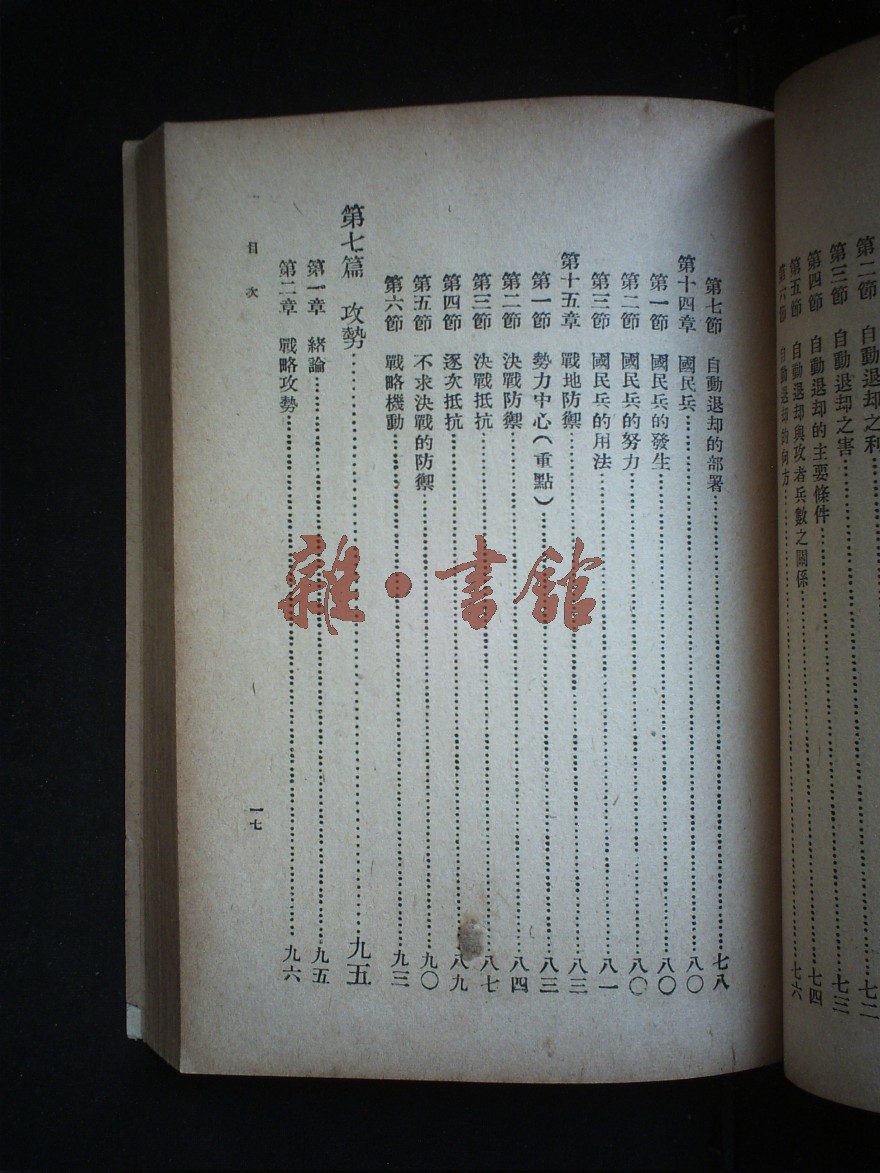 第二節 自動退却之利 七二
第三節 自動退却之害 七三
第四節 自動退却的主要條件 七四
第五節 自動退却與攻者兵數之關係 七六
第六節 自動退却的向方
第七節 自動退却的部署 七八
第十四章 國民兵 八〇
第一節 國民兵的發生 八〇
第二節 國民兵的努力 八〇
第三節 國民兵的用法 八一
第十五章 戰地防禦 八三
第一節 勢力中心(重點) 八三
第二節 決戰防禦 八四
第三節 決戰抵抗 八七
第四節 逐次抵抗 八九
第五節 不求決戰的防禦 九〇
第六節 戰略機動 九三
第七篇 攻勢 九五
第一章 緒論 九五
第二章 戰略攻勢 九六
目次
一七
雜·書館